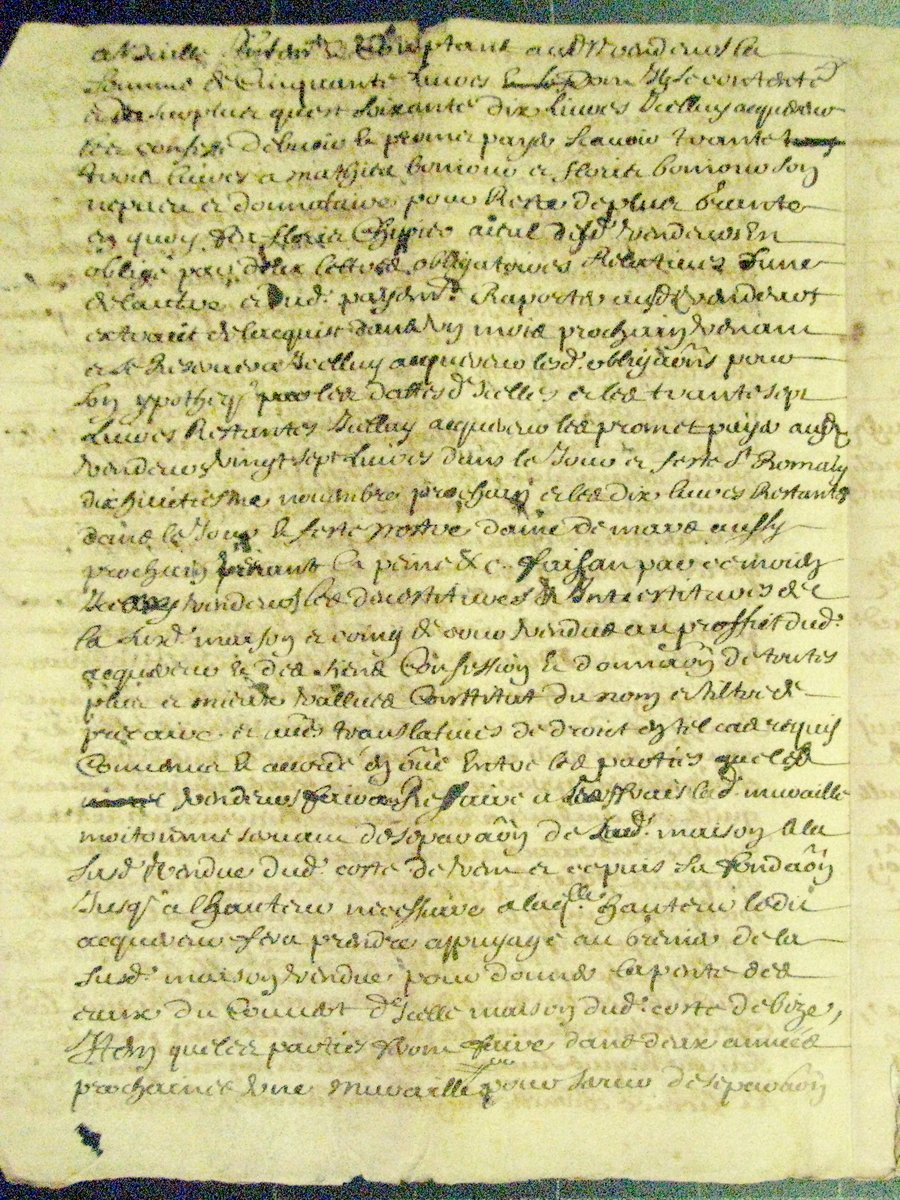 comptant aud. vendeurs la
somme de Cinquante livres
et du surplus quest soixante dix livres Icelluy acquereur
a confesse debvoir et promis payer scavoir trante
trois livres a mathieu bonion et florie bonion son
nepveu et donnataire pour Reste de plus grande
en quoy florie aieul desd. vendeurs En
oblige par deux lettres obligatoires Relatives L'une
de lautre et dud. payemt. Raporter ausd. vendeurs
extraict de lacquit dans un mois prochain venant
et se Reservera Icelluy acquereur lesd. obligaôns pour
son ypothecq. par les dattes d'Icelles et les trante sept
Livres Restantes Icelluy acquereur les promet payer ausd.
vendeurs vingt sept Livres dans le Jour et feste St. Romain
dixhuictiesme novembre prochain et les dix livres Restantes
dans le Jour et feste nostre dame de mars aussy
prochain venant a peine &c. faisan par ce moien
vendeurs les devestitures et Investitures de
la susd. maison et coing de cour vendue au proffict dud.
acquereur & des siens Confession & donnaôn de toutes
plus et mieux vallues Constitut du nom et tiltre de
precaire et aues translatives de droict en tel cas requis
Convenu & acordé en oûe Entre les parties que les
vendeurs faire a frais lad. muraille
mitoienne servant de separaôn de lad. maison a la
susd. vendue dud. costé de vent et depuis sa fondaôn
Jusq. a lhauteur necessaire a laqlle. hauteur ledit
acquereur fera prendre appuyage au grenier de la
susd. maison vendue pour donner la pente des
eaux du Couvert d'Icelle maison dud. costé de bize,
Item que les parties feront faire dans deux années
prochaines une muraille pour servir de separaôn